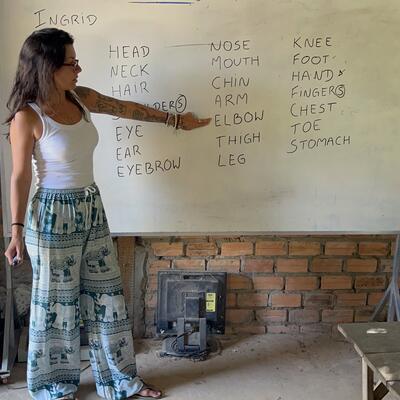 INGRID
HEAD
NECK
HAIR
EYE
EAR
EYEBROW
NOSE
MOUTH
CHIN
ARM
ELBOW
THIGH
LEG
KNEE
FOOT
HAND
FINGERS
CHEST
TOE
STOMACH